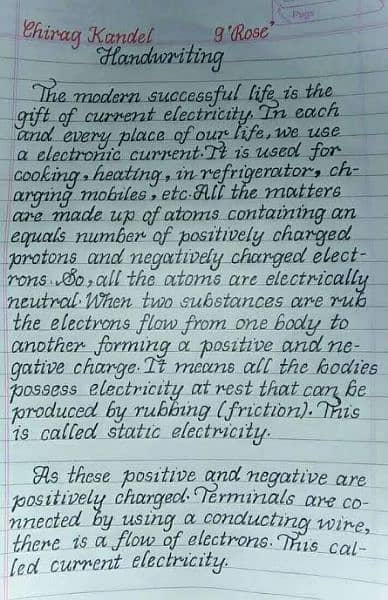 Page
Chirag Kandel 9 'Rose'
Handwriting
The modern successful life is the
gift of current electricity. In each
and every place of our life, we use
a electronic current. It is used for
cooking, heating, in refrigerator, ch-
arging mobiles, etc. All the matters
are made up of atoms containing an
equals number of positively charged
protons and negatively charged elect-
rons. So, all the atoms are electrically
neutral. When two substances are rub
the electrons flow from one body to
another forming a positive and ne-
gative charge. It means all the bodies
possess electricity at rest that can be
produced by rubbing (friction). This
is called static electricity.
As these positive and negative are
positively charged. Terminals are co-
nnected by using a conducting wire,
there is a flow of electrons. This cal-
led current electricity.